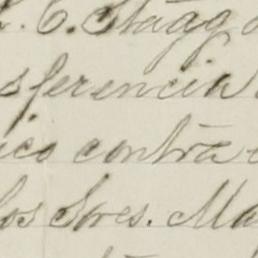 L. C. Stagg
sferencia
ico contra
los Sres. Ma